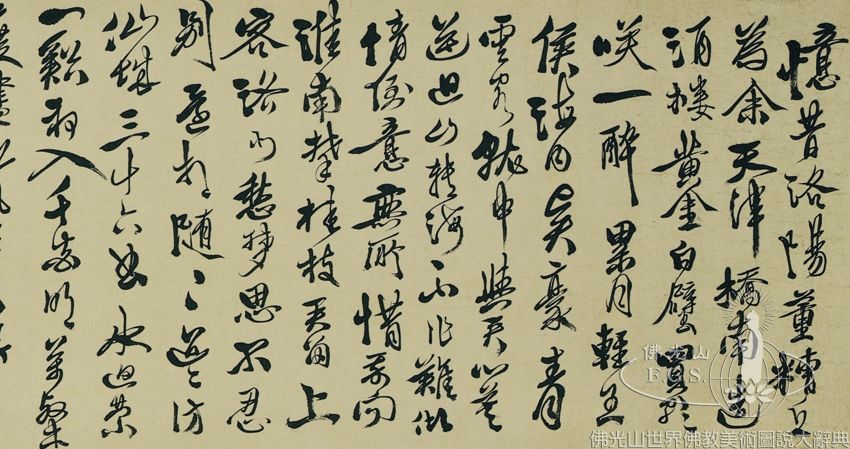 憶昔洛陽董糟丘
為余天津橋南造
酒樓黃金白璧買歌
咲一醉累月輕王
侯海內賢豪青
雲客就中與君心莫
逆迴山轉海不作難傾
情倒意無所惜我向
淮南攀桂枝君留上
客洛北愁夢思不忍
別還相隨〻迢〻訪
仙城三十六曲水迴縈
一谿初入千花明萬壑
度盡松風
佛光山
F.G.S.
佛光山世界佛教美術圖說大辭典